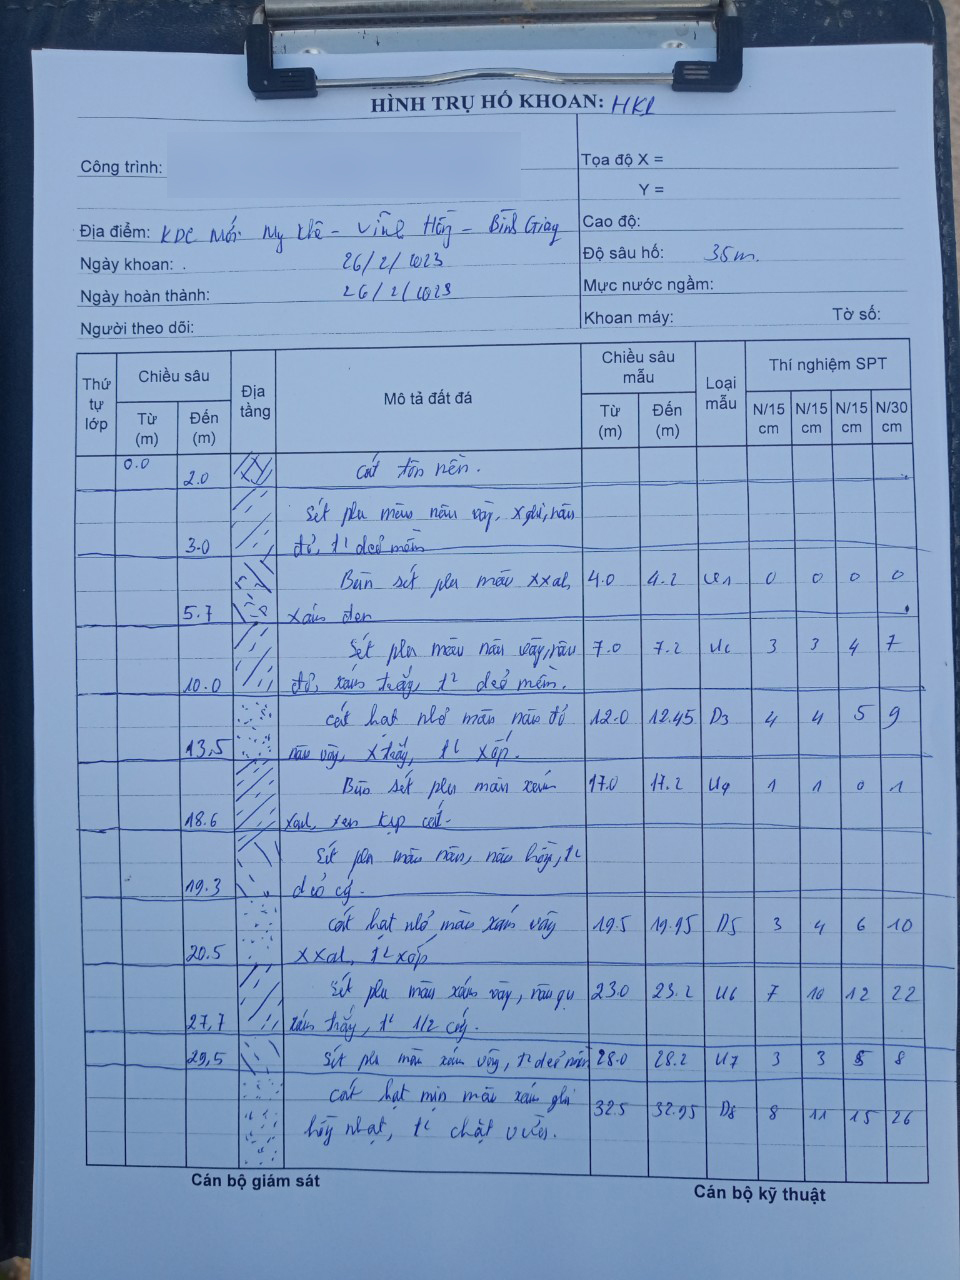 HÌNH TRỤ HỐ KHOAN: HK1
Công trình:
Tọa độ X =
Y =
Địa điểm: KDC Mới Mỹ Khê - Vĩnh Hồng - Bình Giang
Cao độ:
Ngày khoan: 26/2/2023
Độ sâu hố: 35m.
Ngày hoàn thành: 26/2/2023
Mực nước ngầm:
Người theo dõi:
Khoan máy: Tờ số:
Thứ tự lớp Chiều sâu Địa tầng Mô tả đất đá Chiều sâu mẫu Loại mẫu Thí nghiệm SPT
Từ (m) Đến (m) Từ (m) Đến (m) N/15 cm N/15 cm N/15 cm N/30 cm
0.0 2.0 cát tôn nền.
Sét pha màu nâu vàng, xghi, nâu
3.0 đỏ, t² dẻo mềm
Bùn sét pha màu xxah, 4.0 4.2 U1 0 0 0 0
5.7 xám đen
Sét pha màu nâu vàng, nâu 7.0 7.2 U2 3 3 4 7
10.0 đỏ, xám trắng, t² dẻo mềm.
cát hạt nhỏ màu nâu đỏ 12.0 12.45 D3 4 4 5 9
13,5 nâu vàng, xtrắng, t² xốp.
Bùn sét pha màu xám 17.0 17.2 U4 1 1 0 1
18.6 xah, xen kẹp cát.
Sét pha màu nâu, nâu hồng, t²
19.3 dẻo cứng.
cát hạt nhỏ màu xám vàng 19.5 19.95 D5 3 4 6 10
20.5 xxah, t² xốp
Sét pha màu xám vàng, nâu gụ 23.0 23.2 U6 7 10 12 22
27,7 xám trắng, t² 1/2 cứng.
29,5 Sét pha màu xám vàng, t² dẻo mềm 28.0 28.2 U7 3 3 5 8
cát hạt mịn màu xám ghi 32.5 32.95 D8 8 11 15 26
hồng nhạt, t² chặt vừa.
Cán bộ giám sát
Cán bộ kỹ thuật